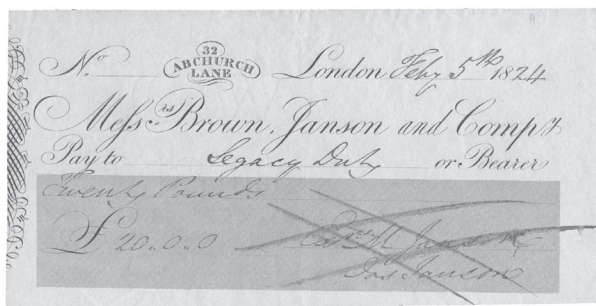 32
ABCHURCH
LANE
No. London Feby 5th 1824
Messrs Brown, Janson and Compy
Pay to Legacy Duty or Bearer
Twenty Pounds
£ 20.0.0 Janson
Janson